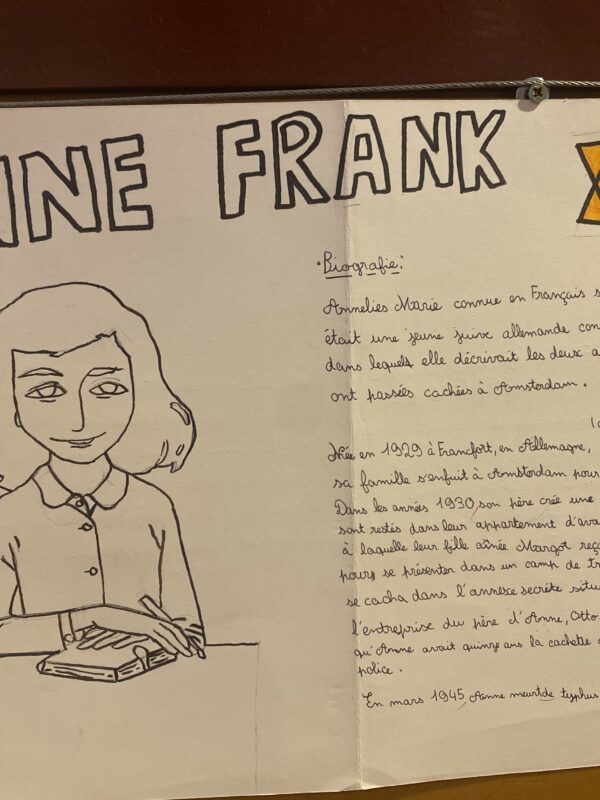 NNE FRANK
• Biografie:
Annelies Marie connue en Français s
était une jeune juive allemande con
dans lequels elle décrivait les deux a
ont passées cachées à Amsterdam.
Née en 1929 à Francfort, en Allemagne,
sa famille s'enfuit à Amsterdam pour
Dans les années 1930, son père crée une
sont restés dans leur appartement d'ava
à laquelle leur fille aînée Margot reç
pours se présenter dans un camp de tr
se cacha dans l'annexe secrète situ
l'entreprise du père d'Anne, Otto
qu'Anne avait quinze ans la cachette
police.
En mars 1945, Anne meurt de typhus